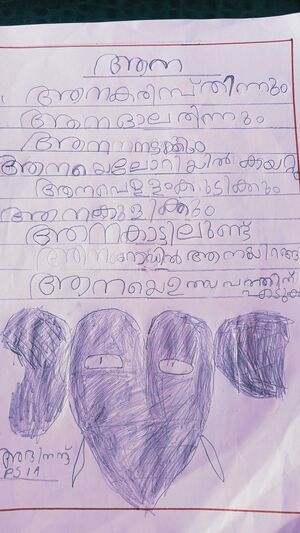 ആന
ആനകരിമ്പ്തിന്നും
ആനഓലതിന്നും
ആനനടക്കും
ആനയെലോറിയിൽകയറ്റും
ആനവെള്ളംകുടിക്കും
ആനകുളിക്കും
ആനകാട്ടിലുണ്ട്
ആന റോഡിൽ ആനയിറങ്ങ
ആനയെഉത്സവത്തിന്
എടുക
അദ്വിനന്ദ്
PS 1A